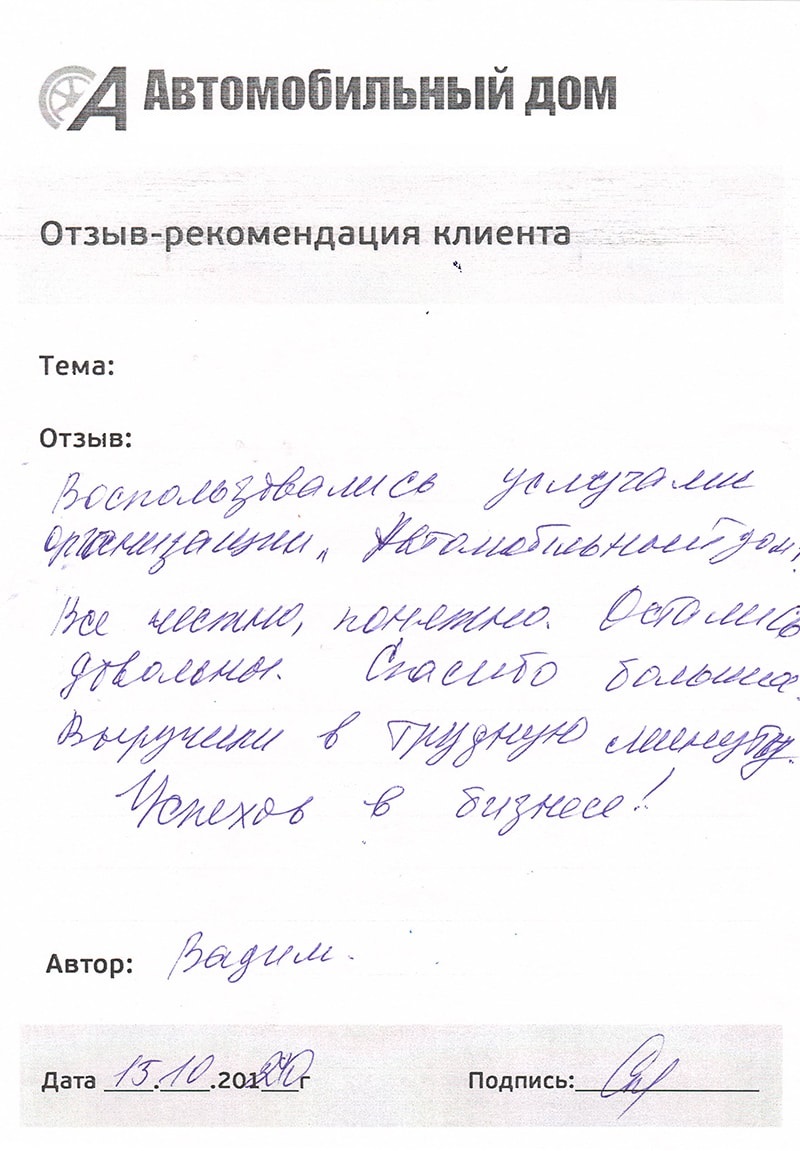 Автомобильный дом
Отзыв-рекомендация клиента
Тема:
Отзыв:
Воспользовались услугами
организации „Автомобильный дом".
Все честно, понятно. Остались
довольны. Спасибо большое.
Выручили в трудную минуту.
Успехов в бизнесе!
Автор: Вадим.
Дата 15.10.201 г Подпись: